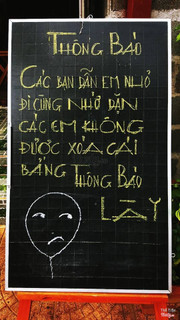 THÔNG BÁO
CÁC BẠN DẪN EM NHỎ
ĐI CÙNG NHỚ DẶN
CÁC EM KHÔNG
ĐƯỢC XÓA CÁI
BẢNG THÔNG BÁO
LẦY